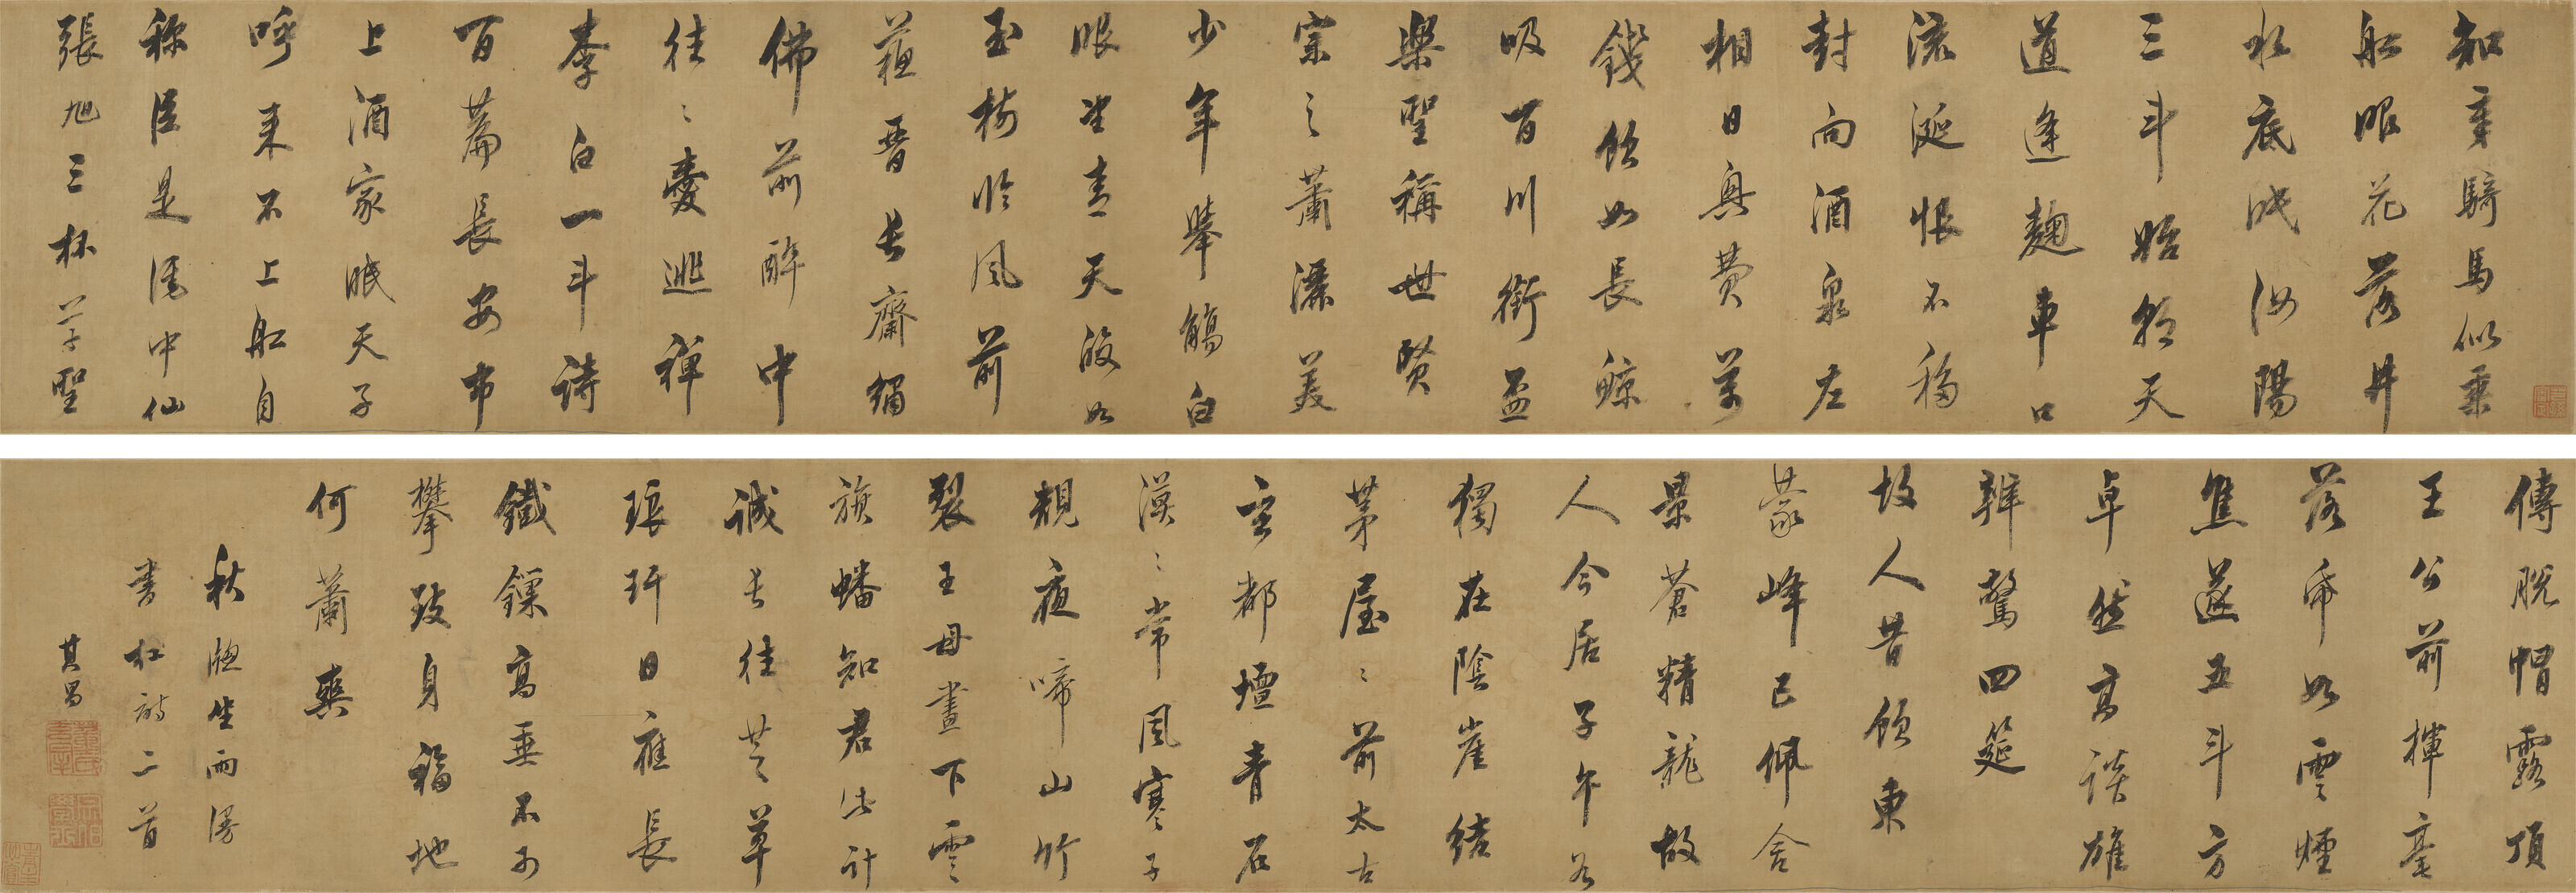 知章騎馬似乘
船眼花落井
水底眠汝陽
三斗始朝天
道逢麴車口
流涎恨不移
封向酒泉左
相日興費萬
錢飲如長鯨
吸百川銜盃
樂聖稱世賢
宗之蕭灑美
少年舉觴白
眼望青天皎如
玉樹臨風前
蘇晉長齋繡
佛前醉中
往〻愛逃禪
李白一斗詩
百篇長安市
上酒家眠天子
呼来不上船自
称臣是酒中仙
張旭三杯草聖
傳脫帽露頂
王公前揮毫
落帋如雲煙
焦遂五斗方
卓然高談雄
辯驚四筵
故人昔隱東
蒙峰已佩含
景蒼精龍故
人今居子午谷
獨在陰崖結
茅屋〻前太古
玄都壇青石
漠〻常風寒子
規夜啼山竹
裂王母晝下雲
旗翻知君此計
誠長往芝草
琅玕日應長
鐵鏁高垂不可
攀致身福地
何蕭爽
秋牕坐雨漫
書杜詩二首
其昌